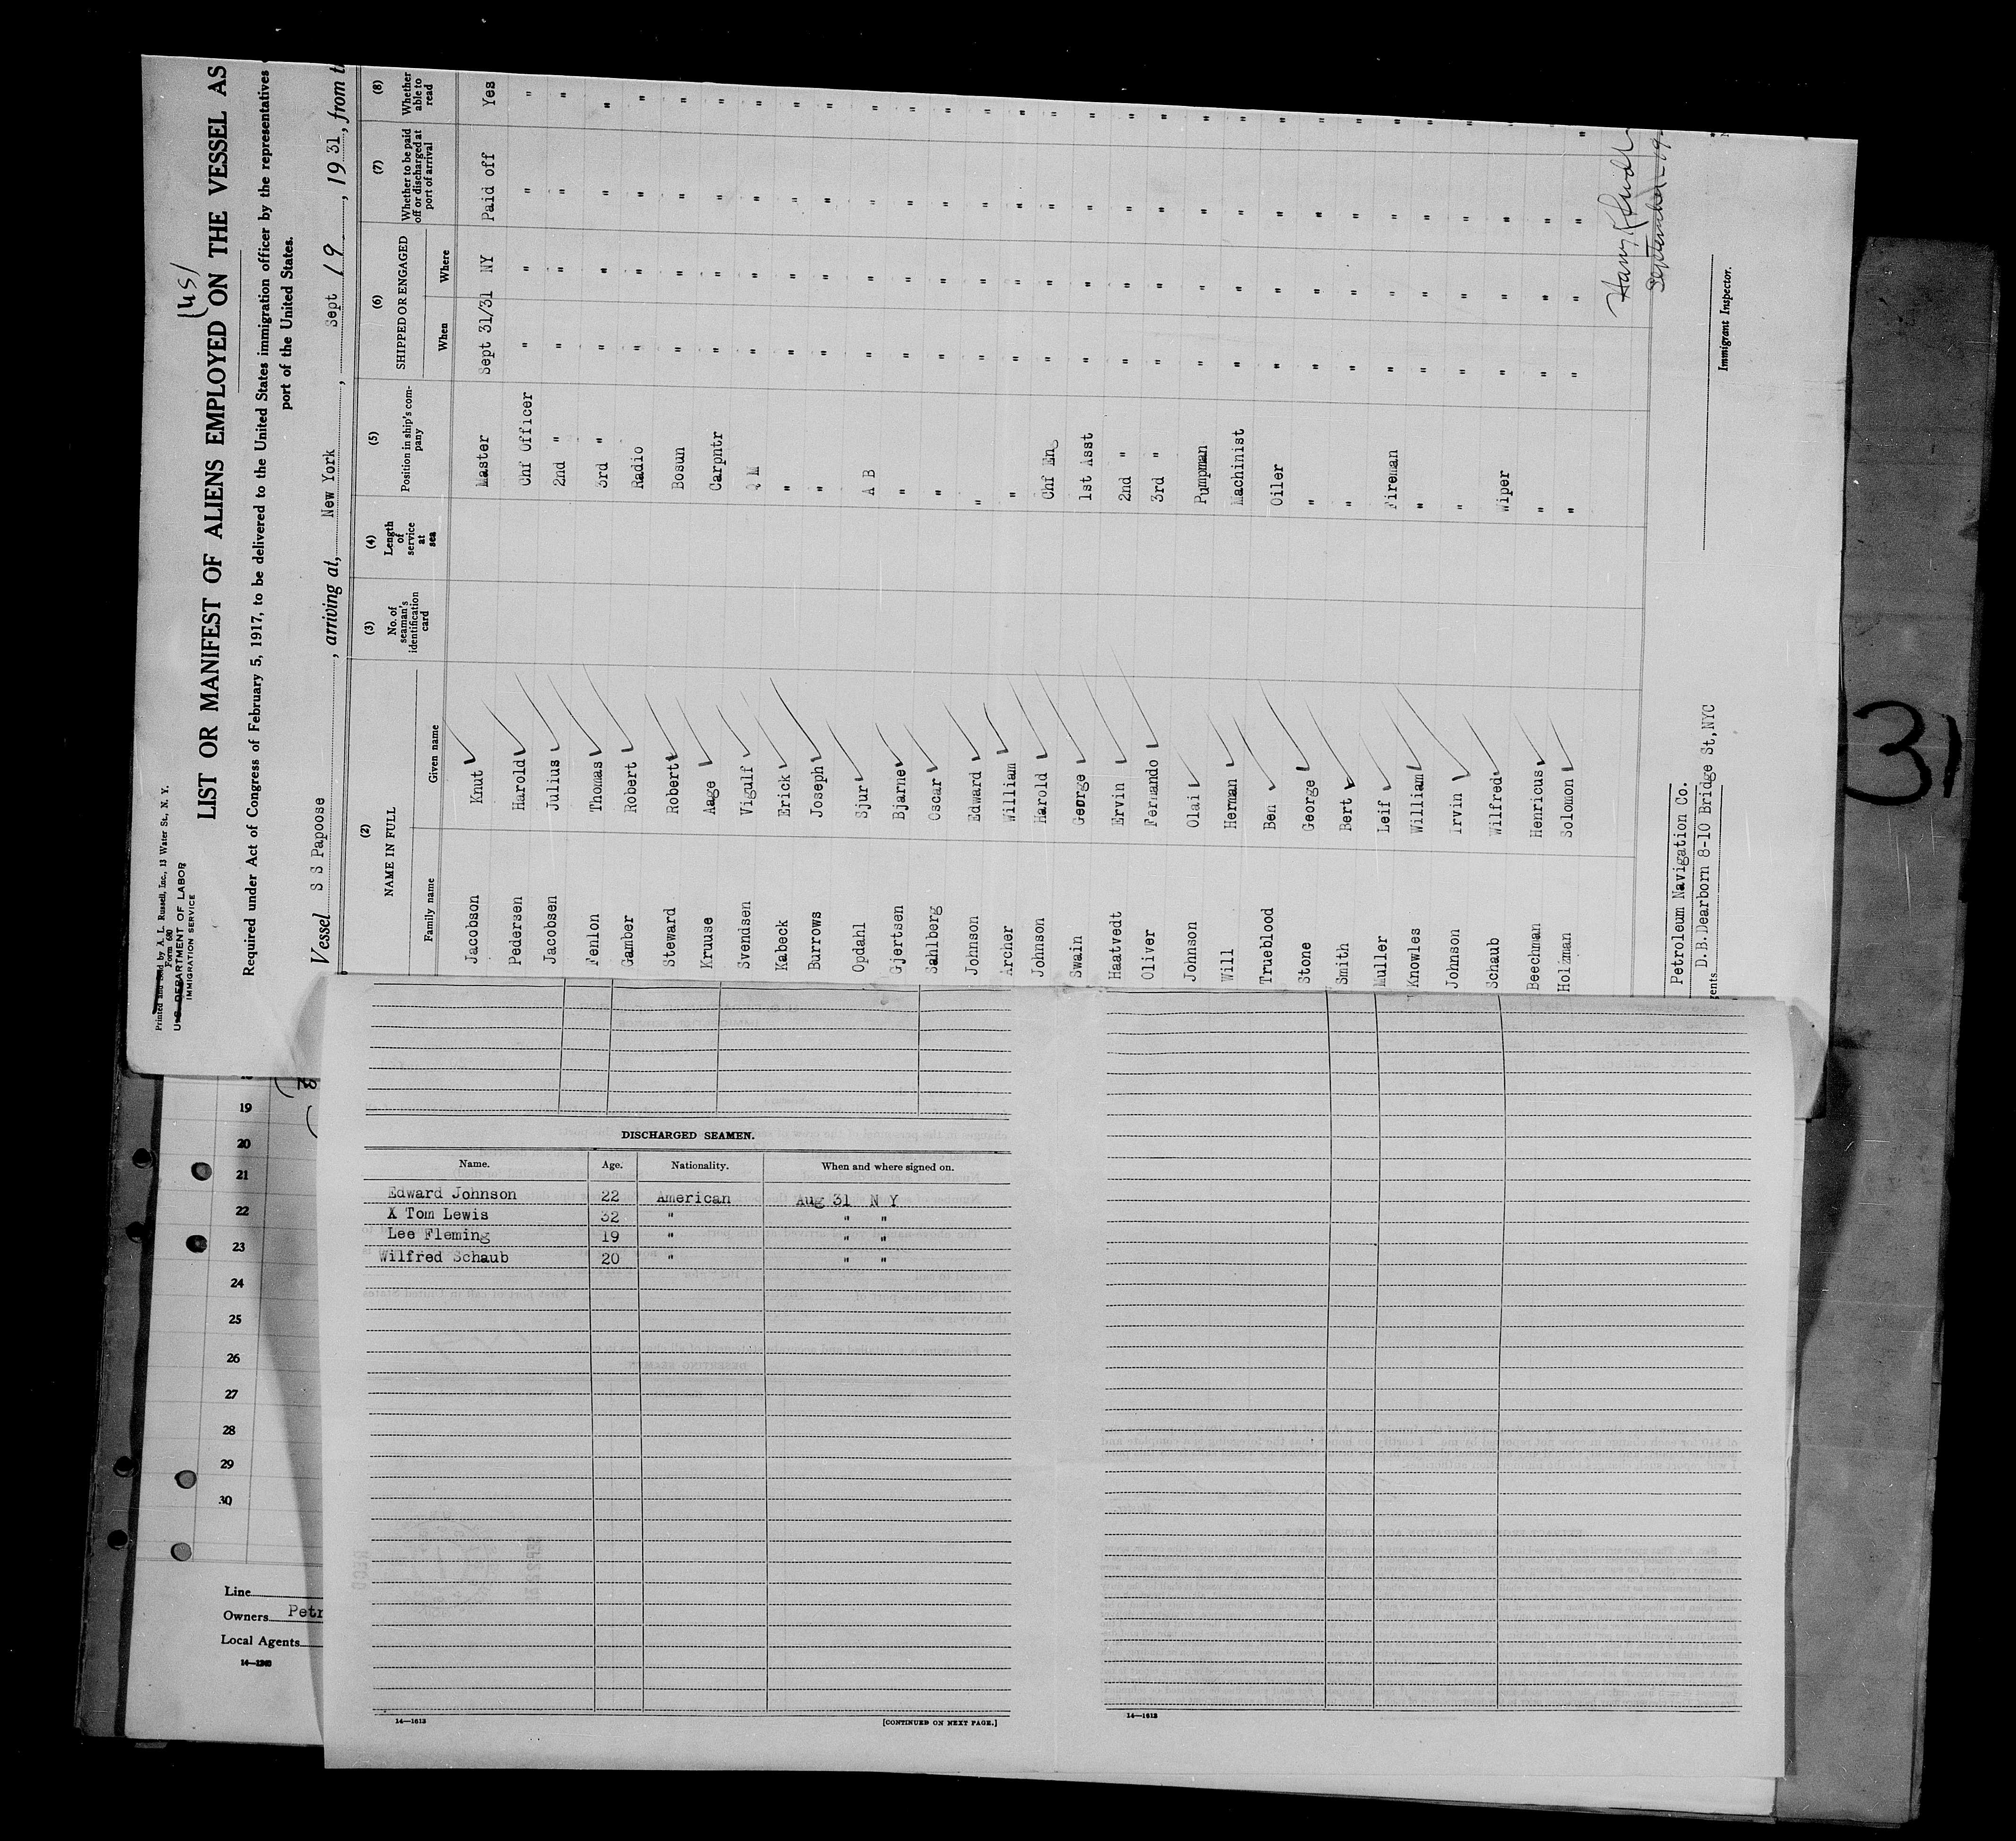 Printed and Sold by A. L. Russell, Inc., 13 Water St., N. Y.
Form 680
U. S. DEPARTMENT OF LABOR
IMMIGRATION SERVICE
(us)
LIST OR MANIFEST OF ALIENS EMPLOYED ON THE VESSEL AS
Required under Act of Congress of February 5, 1917, to be delivered to the United States immigration officer by the representatives
port of the United States.
Vessel S S Papoose, arriving at, New York, Sept 19, 1931, from
(2) (3) (4) (5) (6) (7) (8)
NAME IN FULL No. of seaman's identification card Length of service at sea Position in ship's company SHIPPED OR ENGAGED Whether to be paid off or discharged at port of arrival Whether able to read
Family name Given name When Where
Jacobson Knut Master Sept 31/31 NY Paid off Yes
Pedersen Harold Chf Officer " " " "
Jacobsen Julius 2nd " " " " "
Fenlon Thomas 3rd " " " " "
Gamber Robert Radio " " " "
Steward Robert Bosun " " " "
Kruuse Aage Carpntr " " " "
Svendsen Vigulf Q M " " " "
Kabeck Erick " " " " "
Burrows Joseph " " " " "
Opdahl Sjur A B " " " "
Gjertsen Bjarne " " " " "
Sahlberg Oscar " " " " "
Johnson Edward " " " " "
Archer William " " " " "
Johnson Harold Chf En " " " "
Swain George 1st Asst " " " "
Haatvedt Ervin 2nd " " " " "
Oliver Fernando 3rd " " " " "
Johnson Olai Pumpman " " " "
Will Herman Machinist " " " "
Trueblood Ben Oiler " " " "
Stone George " " " " "
Smith Bert " " " " "
Muller Leif Fireman " " " "
Knowles William " " " " "
Johnson Irvin " " " " "
Schaub Wilfred Wiper " " " "
Beechman Henricus " " " " "
Holzman Solomon " " " " "
Harry
September 19
Petroleum Navigation Co.
D.B.Dearborn 8-10 Bridge St,NYC
Immigrant Inspector.
31
DISCHARGED SEAMEN.
Name. Age. Nationality. When and where signed on.
Edward Johnson 22 American Aug 31 N Y
X Tom Lewis 32 " " "
Lee Fleming 19 " " "
Wilfred Schaub 20 " " "
14—1613
[CONTINUED ON NEXT PAGE.]
14—1613
19
20
21
22
23
24
25
26
27
28
29
30
Line
Owners Petr
Local Agents
14—1240